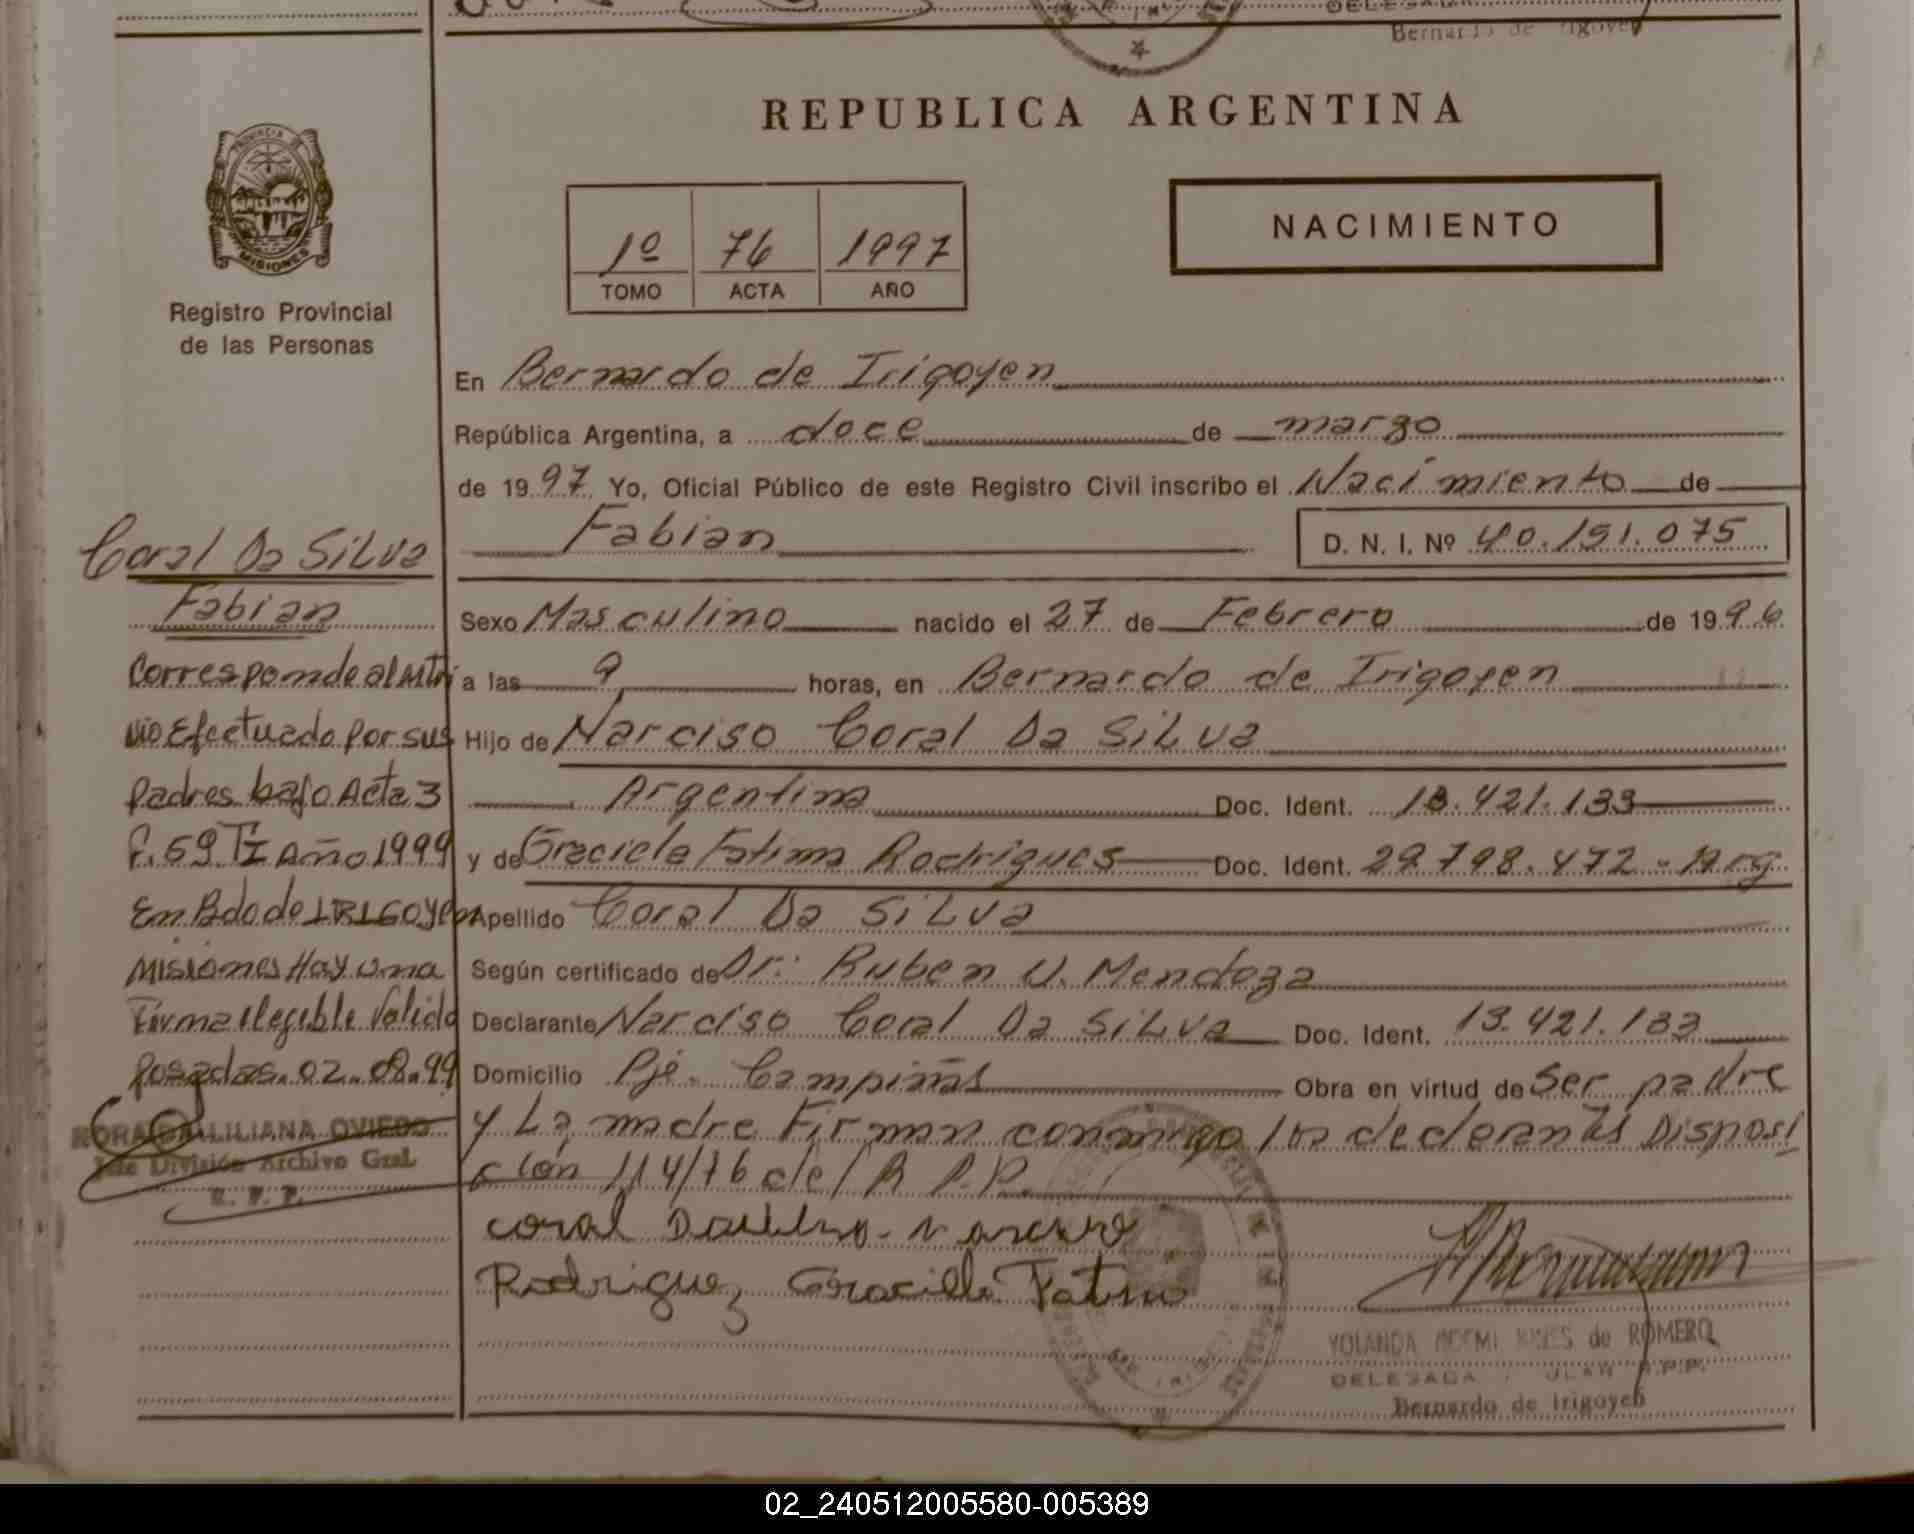 DELEGADA
Bernardo de Irigoyen
REPUBLICA ARGENTINA
PROVINCIA DE
MISIONES
Registro Provincial
de las Personas
1º 76 1997
TOMO ACTA AÑO
NACIMIENTO
En Bernardo de Irigoyen
República Argentina, a doce de marzo
de 1997 Yo, Oficial Público de este Registro Civil inscribo el Nacimiento de
Fabian D. N. I. Nº 40.151.075
Sexo Masculino nacido el 27 de Febrero de 1996
a las 9 horas, en Bernardo de Irigoyen
Hijo de Narciso Coral Da SiLva
Argentina Doc. Ident. 13.421.133
y de Graciela Fatima Rodrigues Doc. Ident. 29.798.472 - Arg
Apellido Coral Da SiLva
Según certificado de Dr: Ruben U. Mendoza
Declarante Narciso Coral Da SiLva Doc. Ident. 13.421.133
Domicilio Pje. Campiñas Obra en virtud de Ser padre
y La madre Firman conmigo los declarantes Disposi
ción 114/76 del R.P.P.
coral Da
Rodriguez Gracielle Fatima
YOLANDA NOEMI de ROMERO
DELEGADA R.P.P.
Bernardo de Irigoyen
Coral Da SiLva
Fabian
Corresponde al Mtri
Nio Efectuado por sus
padres bajo Acta 3
F. 59 TI Año 1999
En Bdo de IRIGOyen
Misiones Hay una
Firma ilegible Valido
Posadas. 02.08.99
LILIANA OVIEDO
Jefe División Archivo Gral.
R. P. P.
02_240512005580-005389